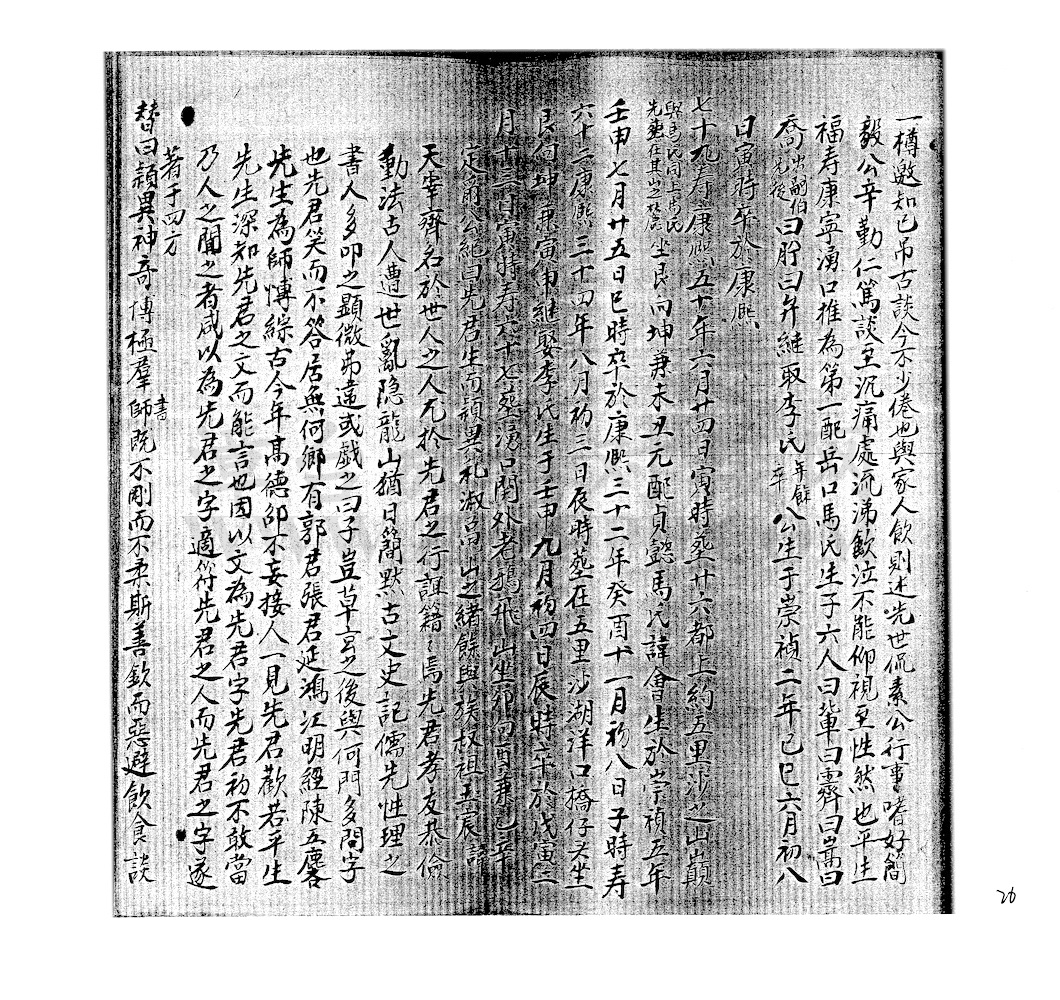 一樽邀知己吊古談今不少倦也與家人飲則述先世侃素公行事嗜好簡
毅公辛勤仁篤談至沉痛處流涕飲泣不能仰視至性然也平生
福寿康寧湧口推為第一配岳口馬氏生子六人曰鞏曰霽曰嵩曰
喬出嗣伯先後曰肝曰弁継取李氏年餘卒公生于崇禎二年己巳六月初八
日寅時卒於康熙
七十九寿康熙五十年六月廿四日寅時塟廿六都上約五里沙芝山巔
與馬氏同上馬氏先塟在其芝林君坐艮向坤兼未丑元配貞懿馬氏諱會生於崇禎五年
壬申七月廿五日巳時卒於康熙三十二年癸酉十一月初八日子時寿
六十二康熙三十四年八月初三日辰時塟在五里沙湖洋口橋仔头坐
艮向坤兼寅申継娶李氏生于壬申九月初四日辰時卒於戊寅二
月十三日寅時寿六十七塟湧口開外老鴉飛山坐卯向酉兼乙辛
定甫公絶曰先君生而頴異札淑高山之緒餘與族叔祖五辰諱
天宰齊名於世人之人尤於先君之行誼籍ミ焉先君孝友恭儉
動法古人遭世亂隐龍山猶日簡默古文史記儒先性理之
書人多叩之顯微弟違或戯之曰子豈草玄之後與何門多問字
也先君笑而不答居無何鄉有郭君張君延鴻江明經陳五麐
先生為師愽綜古今年高德卲不妄接人一見先君歡若平生
先生深知先君之文而能言也因以文為先君字先君初不敢當
乃人之聞之者咸以為先君之字適符先君之人而先君之字遂
著于四方
替曰頴異神奇博極羣書師既不剛而不柔斯善欽而惡避飲食談
20